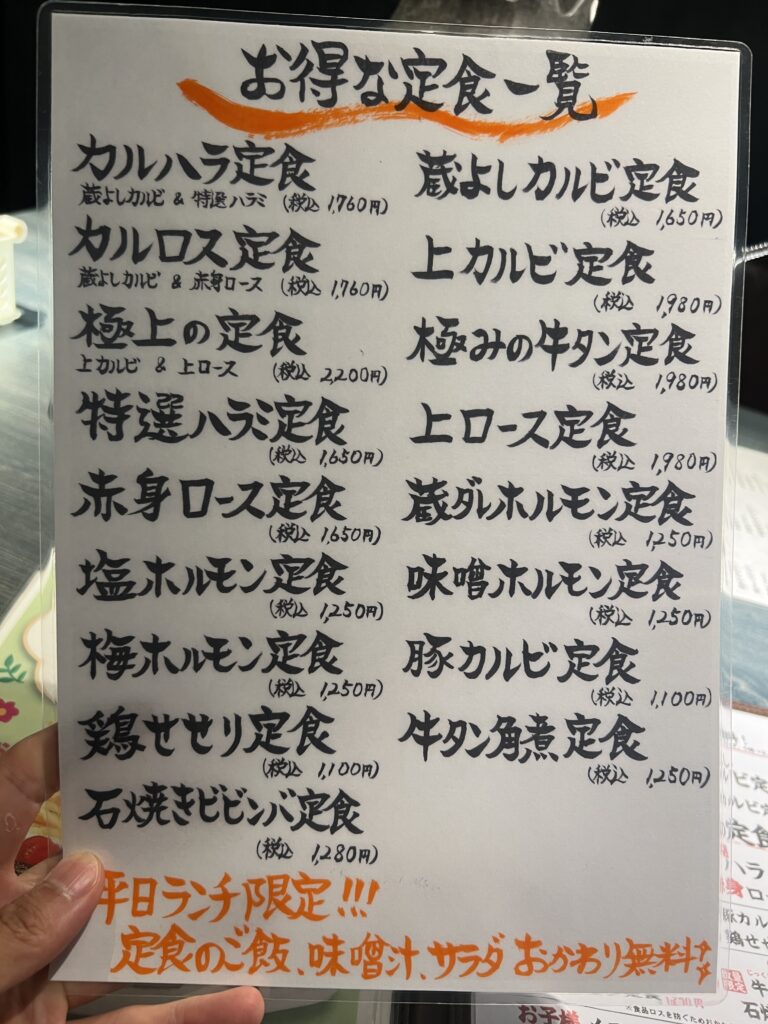 お得な定食一覧
カルハラ定食
蔵よしカルビ & 特選ハラミ (税込 1,760円)
カルロス定食
蔵よしカルビ & 赤身ロース (税込 1,760円)
極上の定食
上カルビ & 上ロース (税込 2,200円)
特選ハラミ定食
(税込 1,650円)
赤身ロース定食
(税込 1,650円)
塩ホルモン定食
(税込 1,250円)
梅ホルモン定食
(税込 1,250円)
鶏せせり定食
(税込 1,100円)
石焼きビビンバ定食
(税込 1,280円)
蔵よしカルビ定食
(税込 1,650円)
上カルビ定食
(税込 1,980円)
極みの牛タン定食
(税込 1,980円)
上ロース定食
(税込 1,980円)
蔵ダレホルモン定食
(税込 1,250円)
味噌ホルモン定食
(税込 1,250円)
豚カルビ定食
(税込 1,100円)
牛タン角煮定食
(税込 1,250円)
平日ランチ限定!!!
定食のご飯、味噌汁、サラダ おかわり無料
定食
数量限定
お子様
※食品ロスを防ぐため